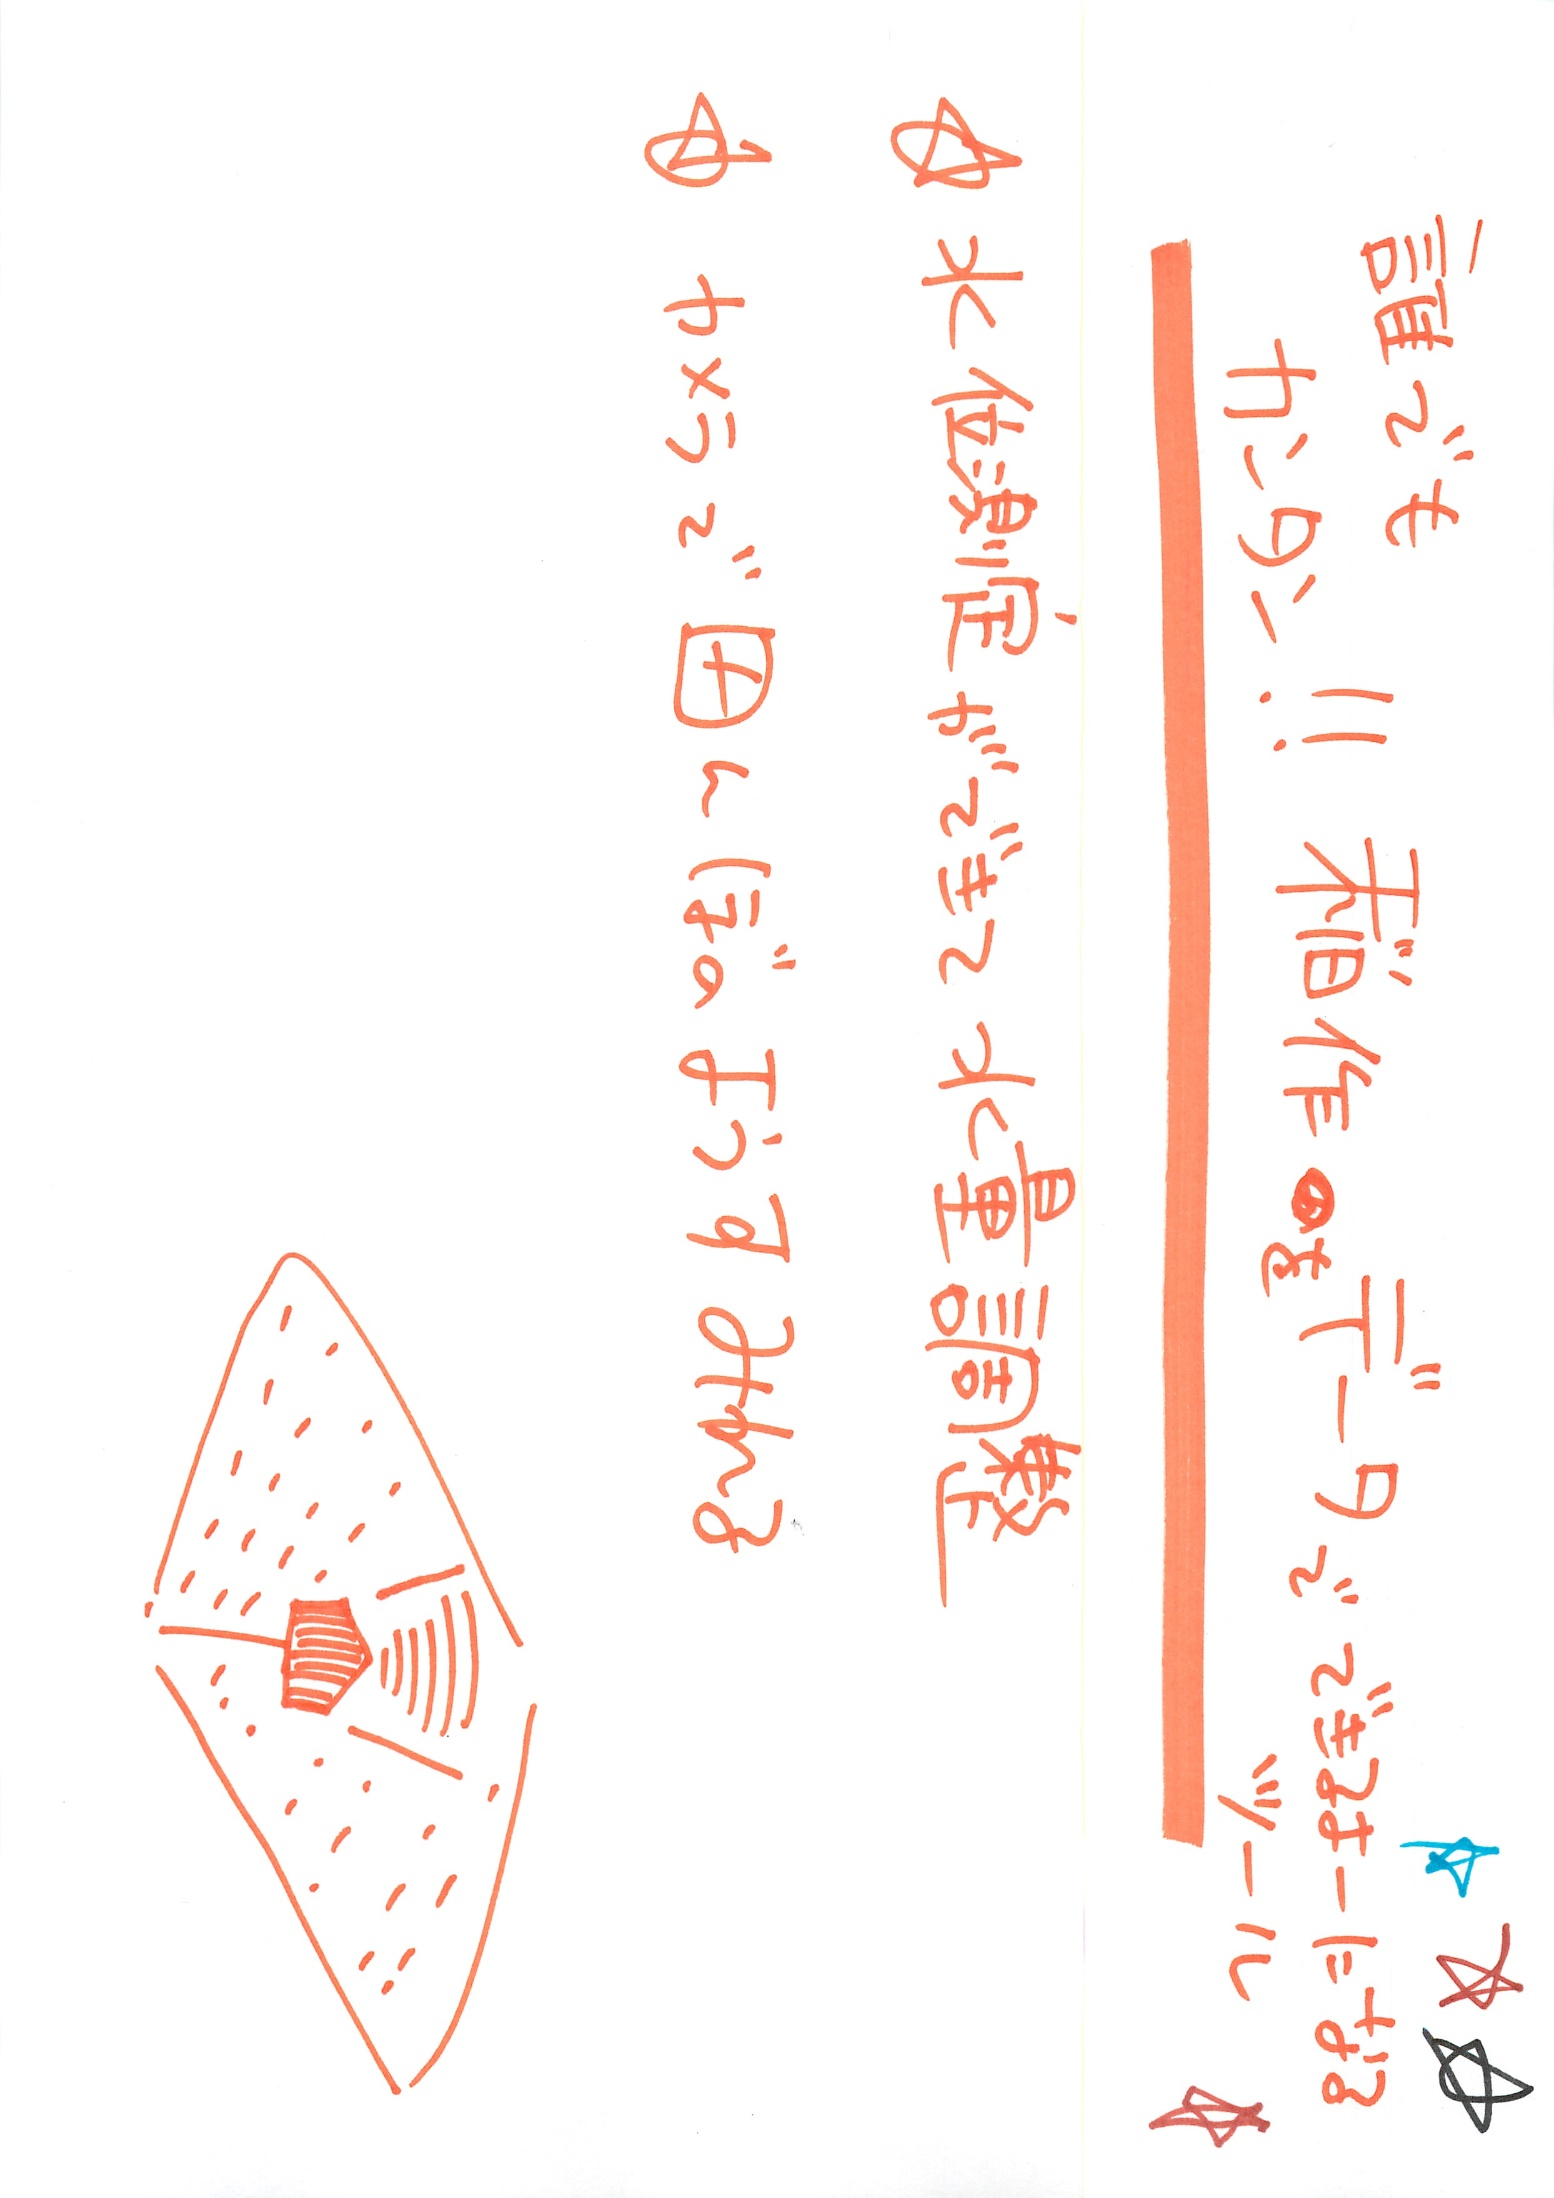 誰でも
カンタン!! 稲作をデータでできるよーになる
ツール
☆ 水位測定ができて水量調整
☆ カメラで田んぼのようすみれる